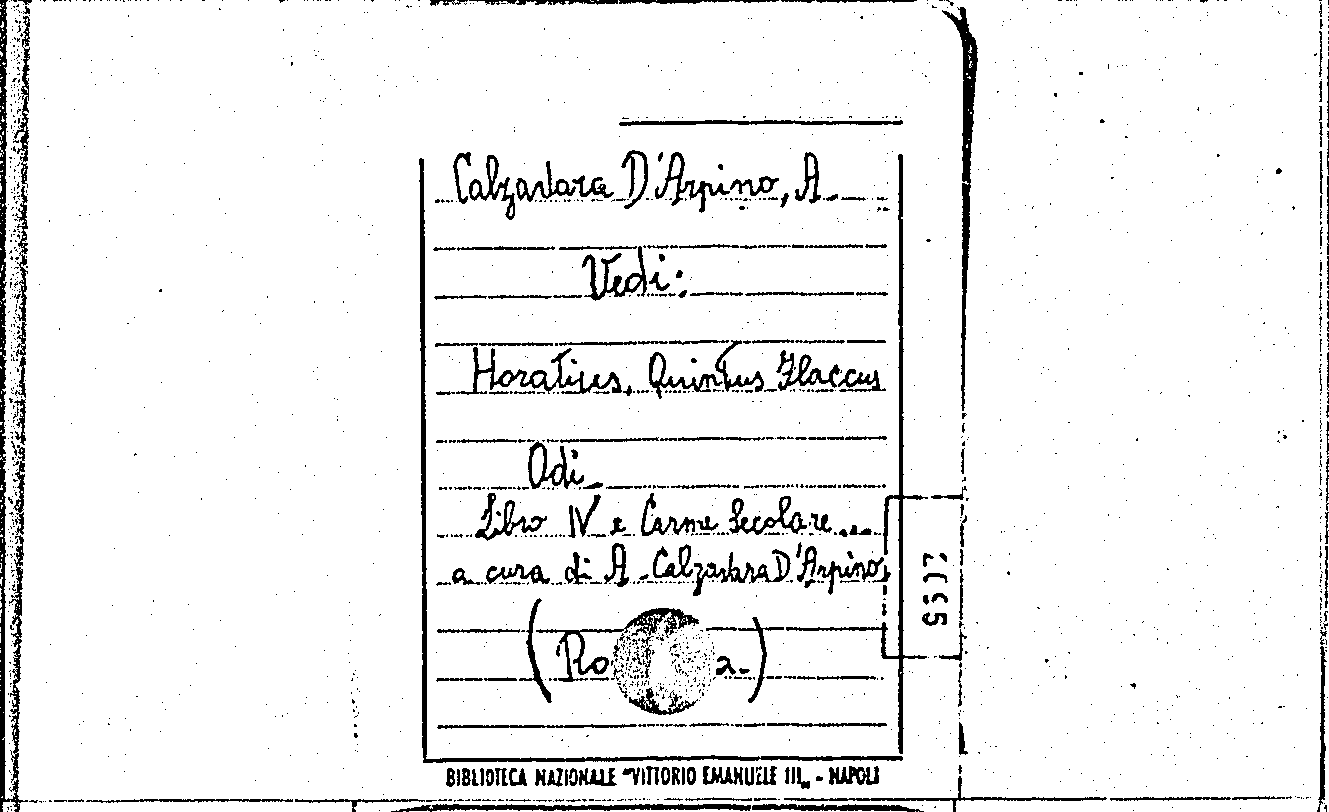 Calzavara D'Arpino, A.
Vedi:
Horatius, Quintus Flaccus
Odi
Libro IV e Carme Secolare...
a cura di A. Calzavara D'Arpino,
(Ro a.)
BIBLIOTECA NAZIONALE "VITTORIO EMANUELE III„ - NAPOLI